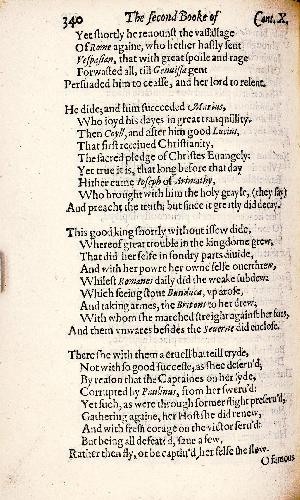 340 The second Booke of Cant. X.
Yet shortly he renounst the vassallage
Of Rome againe, who hether hastly sent
Vespasian, that with great spoile and rage
Forwasted all, till Genuissa gent
Persuaded him to ceasse, and her lord to relent.
He dide; and him succeeded Marius,
Who ioyd his dayes in great tranquillity.
Then Coyll, and after him good Lucius,
That first receiued Christianity,
The sacred pledge of Christes Euangely:
Yet true it is, that long before that day
Hither came Ioseph of Arimathy,
Who brought with him the holy grayle, (they say)
And preacht the truth; but since it greatly did decay.
This good king shortly without issew dide,
Whereof great trouble in the kingdome grew,
That did her selfe in sondry parts diuide,
And with her powre her owne selfe ouerthrew,
Whilest Romanes daily did the weake subdew:
Which seeing stout Bunduca, vp arose,
And taking armes, the Britons to her drew;
With whom she marched streight against her foes,
And them vnwares besides the Seuerne did enclose.
There she with them a cruell batteill tryde,
Not with so good successe, as shee deseru'd;
By reason that the Captaines on her syde,
Corrupted by Paulinus, from her sweru'd:
Yet such, as were through former flight preseru'd,
Gathering againe, her Host she did renew,
And with fresh corage on the victor seru'd:
But being all defeated, saue a few,
Rather then fly, or be captiu'd, her selfe she slew.
O famous